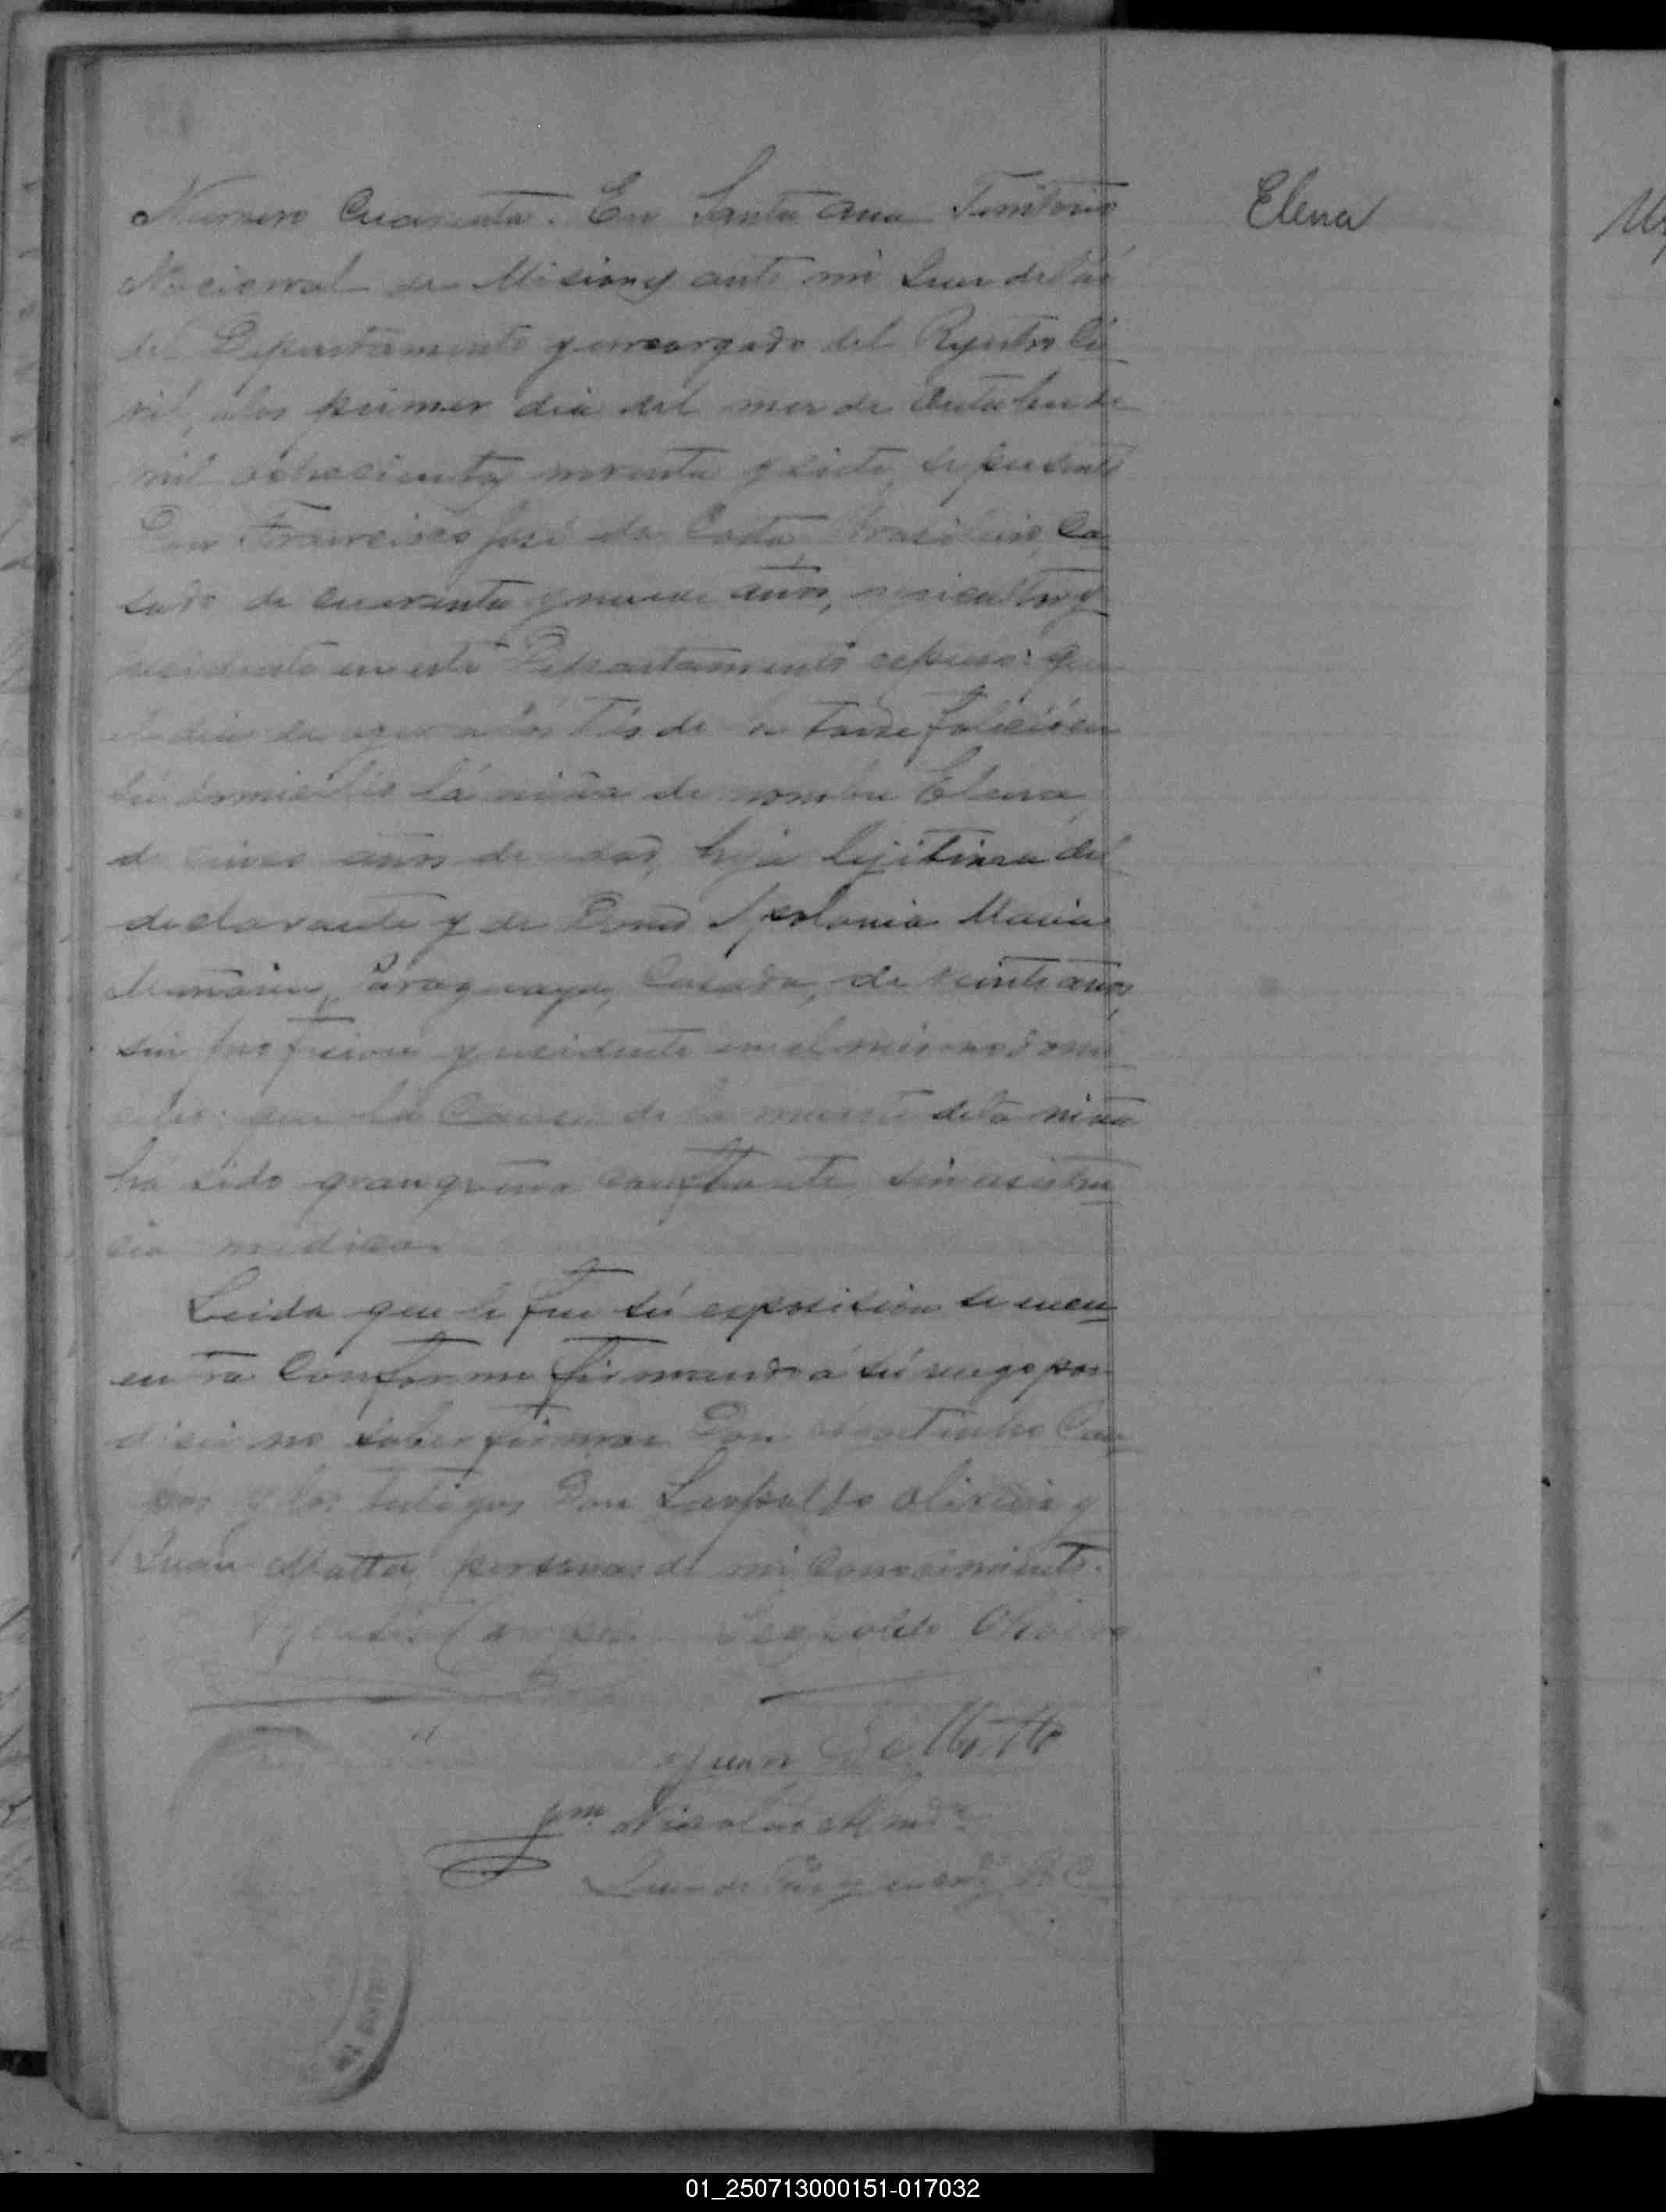 Numero Cuarenta. En Santa Ana Territorio
Elena
Nacional de Misiones ante mi Juez de Paz
del Departamento y encargado del Registro Ci
vil, alos primer dia del mes de Octubre de
mil ochocientos noventa y siete, se presentó
Don Francisco José da Costa, Brasilero, Ca
sado de cuarenta y nueve años, agricultor y
residente en este Departamento espuso: que
el dia de ayer a las tres de la tarde falleció en
sú domicilio la niña de nombre Elena,
de cinco años de edad, hija lejitima del
declarante y de Doña Apolonia Maria
Paraguaya, Casada, de veinte años,
sin profesion y residente en el mismo domi
cilio: que la Causa de la muerte dela niña
ha sido grangrena sin asisten
cia medica.
Leida que le fue sú esposision se encu
entra Conforme firmando á sú ruego por
decir no saber firmar Don Cam
pos y los testigos Don Leopoldo Olivera y
Juan Matto, personas de mi Conocimiento.
Campos Leopoldo Olivera
Juan Matto
Nicolás
Juez de Paz y encdo R. C.
01_250713000151-017032